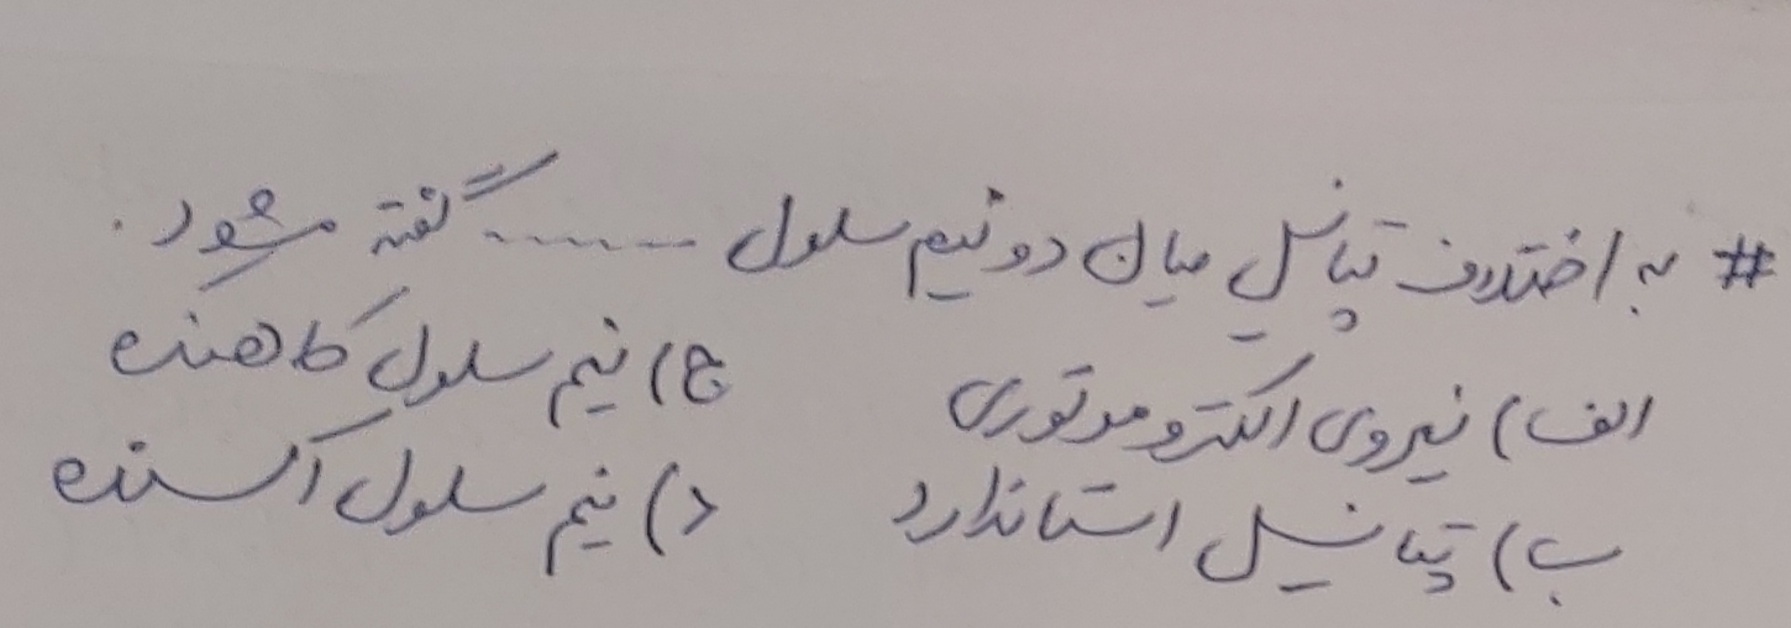 # به اختلاف پتانسیل میان دو نیم سلول ....... گفته میشود.
الف) نیروی الکتروموتوری ج) نیم سلول کاهنده
ب) پتانسیل استاندارد د) نیم سلول اکسنده